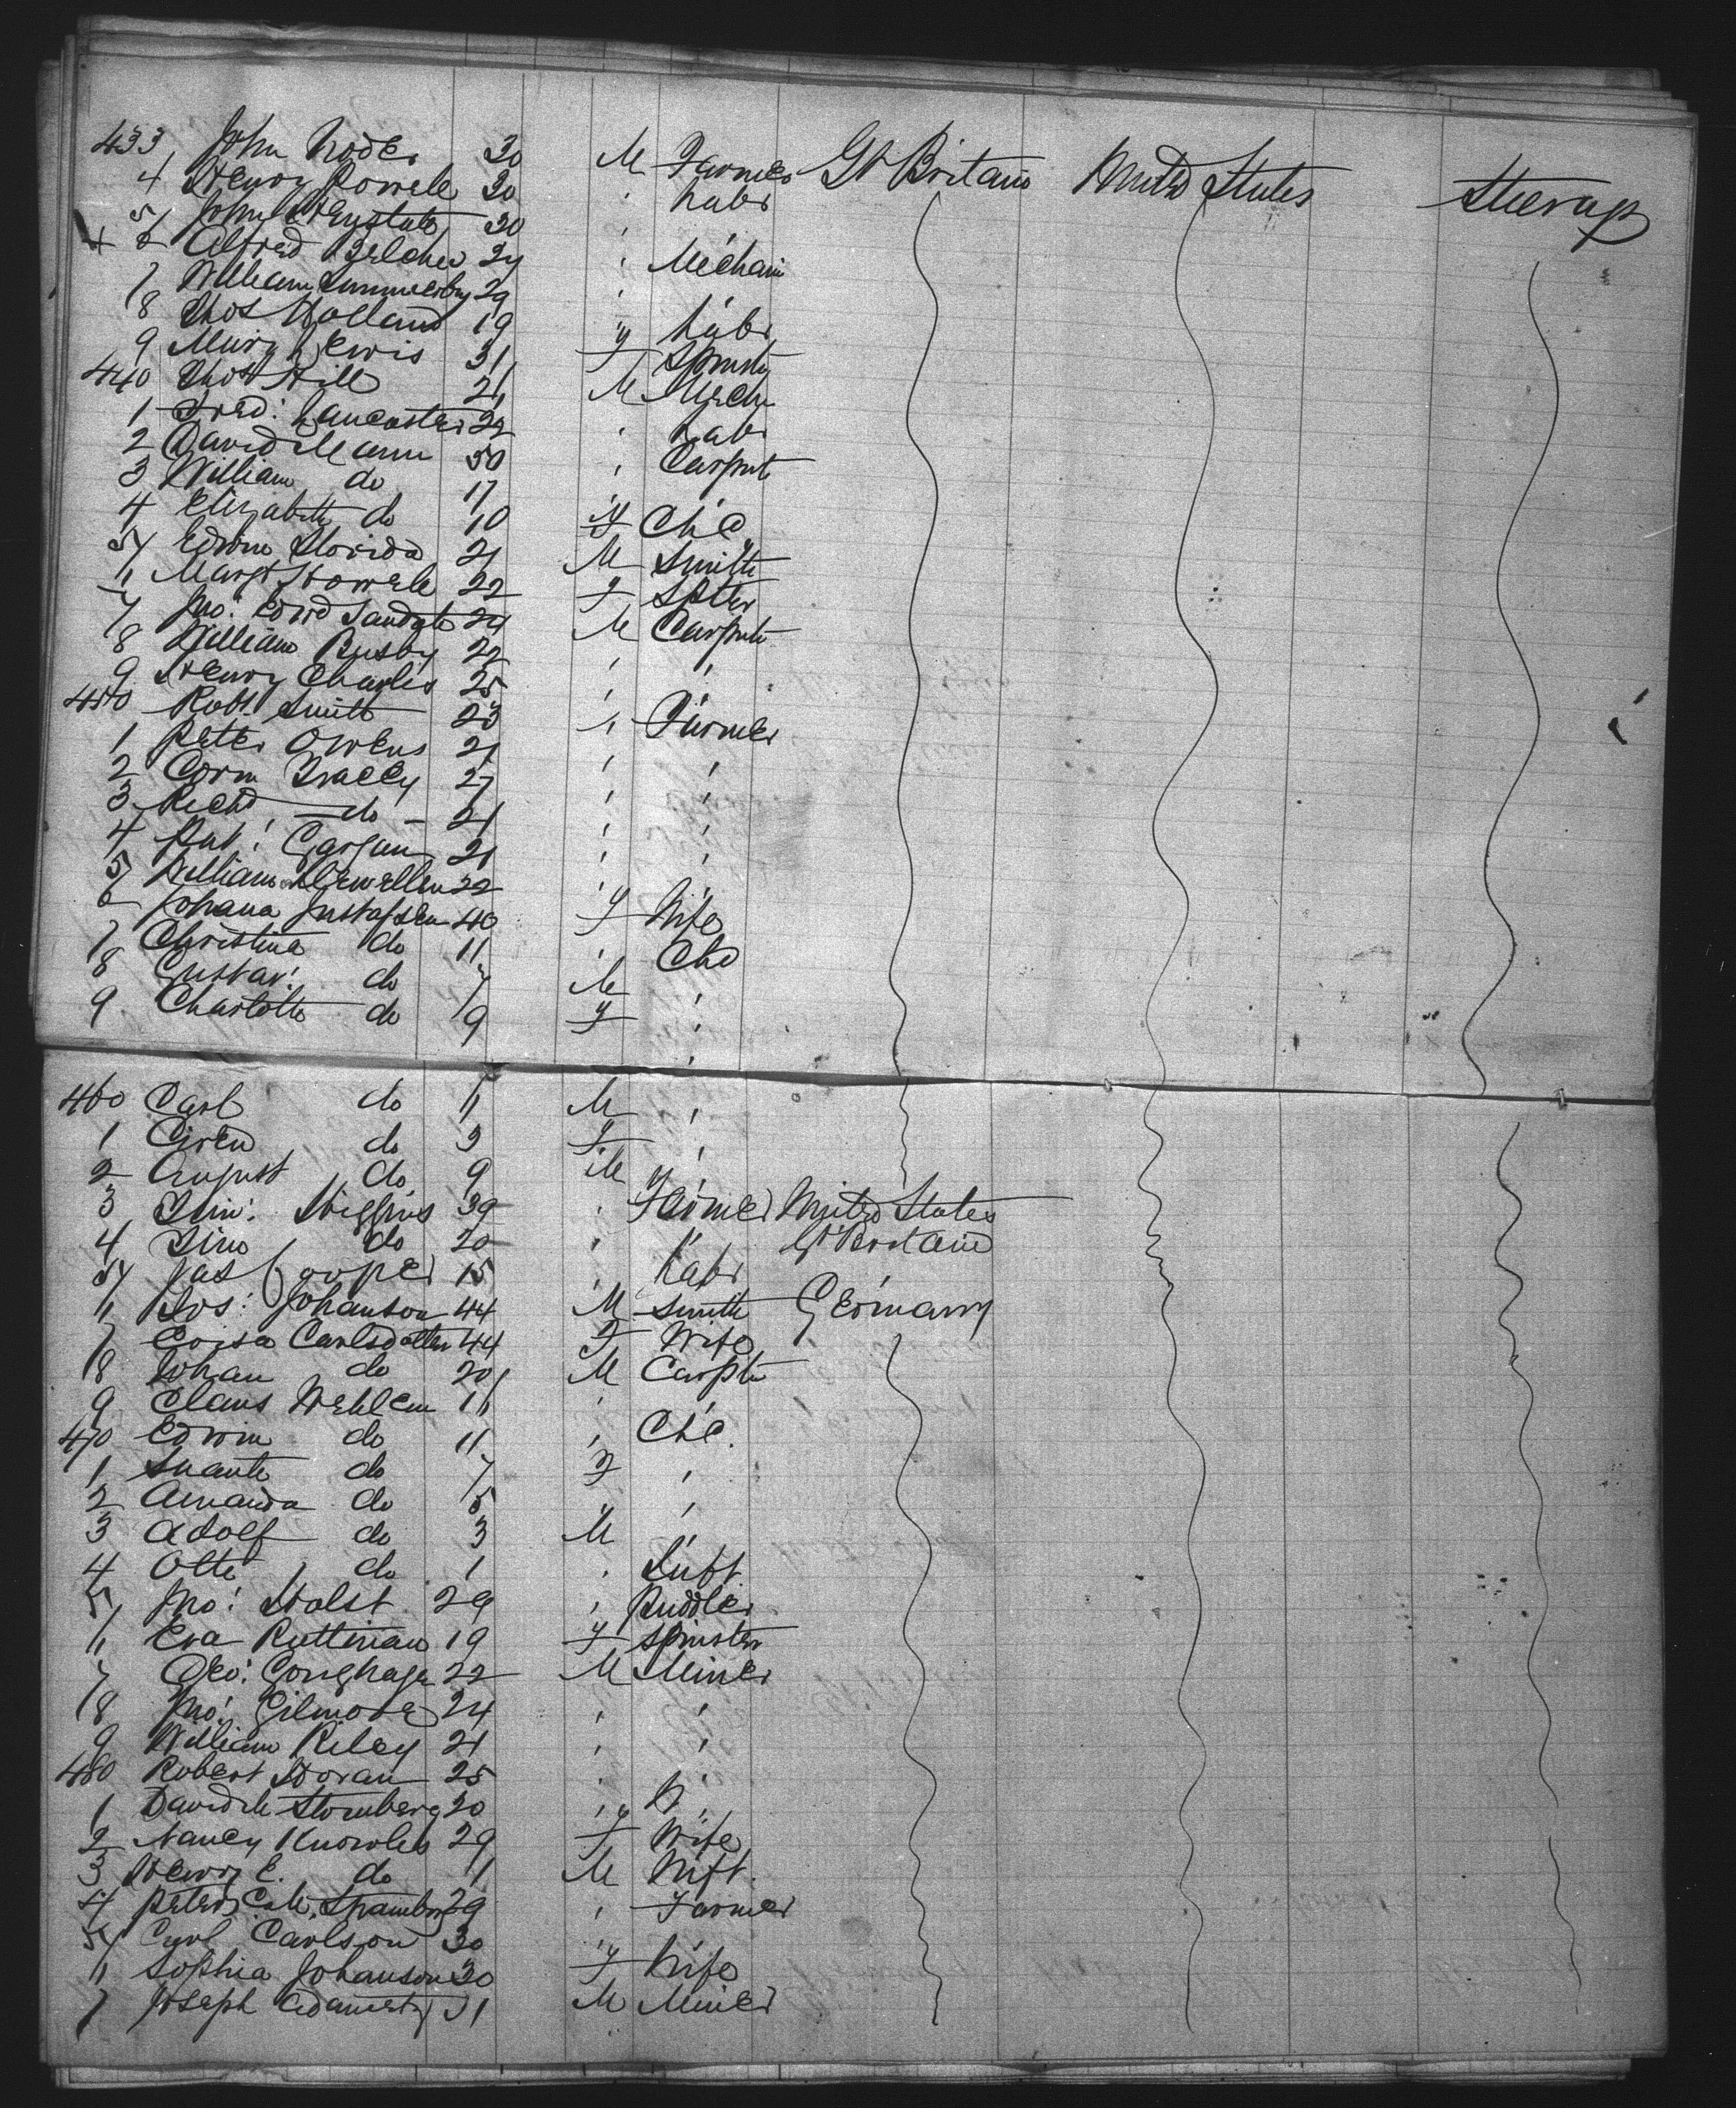 433 John 30 M Farmer Gt Britain United States Steerage
4 Henry Powele 30 " Labr
5 John 30 "
6 Alfred Belcher 24 " Mechani
7 William 29 "
8 Thos Holland 19 " Labr
9 Mary Lewis 31 F Spinster
440 Thos Hill 21 M Mech
1 Fred: Lancaster 22 " Labr
2 David Mann 50 " Carpnt
3 William do 17
4 Elizabeth do 10 F Chd
5 Edwin Florida 21 M Smith
6 Margt Howele 22 F Spster
7 Jno: Edwd 24 M Carpnt
8 William Busby 22 " "
9 Henry Charles 25 " "
450 Robt Smith 23 " Farmer
1 Peter Owens 21 " "
2 Corn Tracey 27 " "
3 Richd do 21 " "
4 Pat: Gargan 21 " "
5 William Llewellen 22 " "
6 Johana Gustafsen 40 F Wife
7 Christina do 11 " Chd
8 Gustav: do 7 M "
9 Charlotte do 9 F "
460 Carl do 11 M "
1 do 3 F "
2 August do 9 M "
3 Tim: Higgins 39 " Farmer United States
4 Tim do 20 " " Gt Britain
5 Jas Cooper 15 " Labr
6 Jos: Johanson 44 M Smith Germany
7 Carlsdotten 44 F Wife
8 Johan do 20 M Carptr
9 Claus Wehlem 16 "
470 Edwin do 11 " Chd.
1 Suante do 7 F "
2 Amanda do 5 "
3 Adolf do 3 M
4 Otto do 1 " Inft
5 Jno: Holst 29 " Puddler
6 Eva Ruttman 19 F Spinster
7 Geo: 22 M Miner
8 Jno: Gilmore 24 " "
9 William Riley 21 " "
480 Robert Horan 25 " "
1 David Stromberg 30 "
2 Nancy Knowles 29 F Wife
3 Henry E. do 11 M Inft.
4 Peter 29 " Farmer
5 Carl Carlson 30 "
6 Sophia Johanson 30 F Wife
7 Joseph 31 M Miner